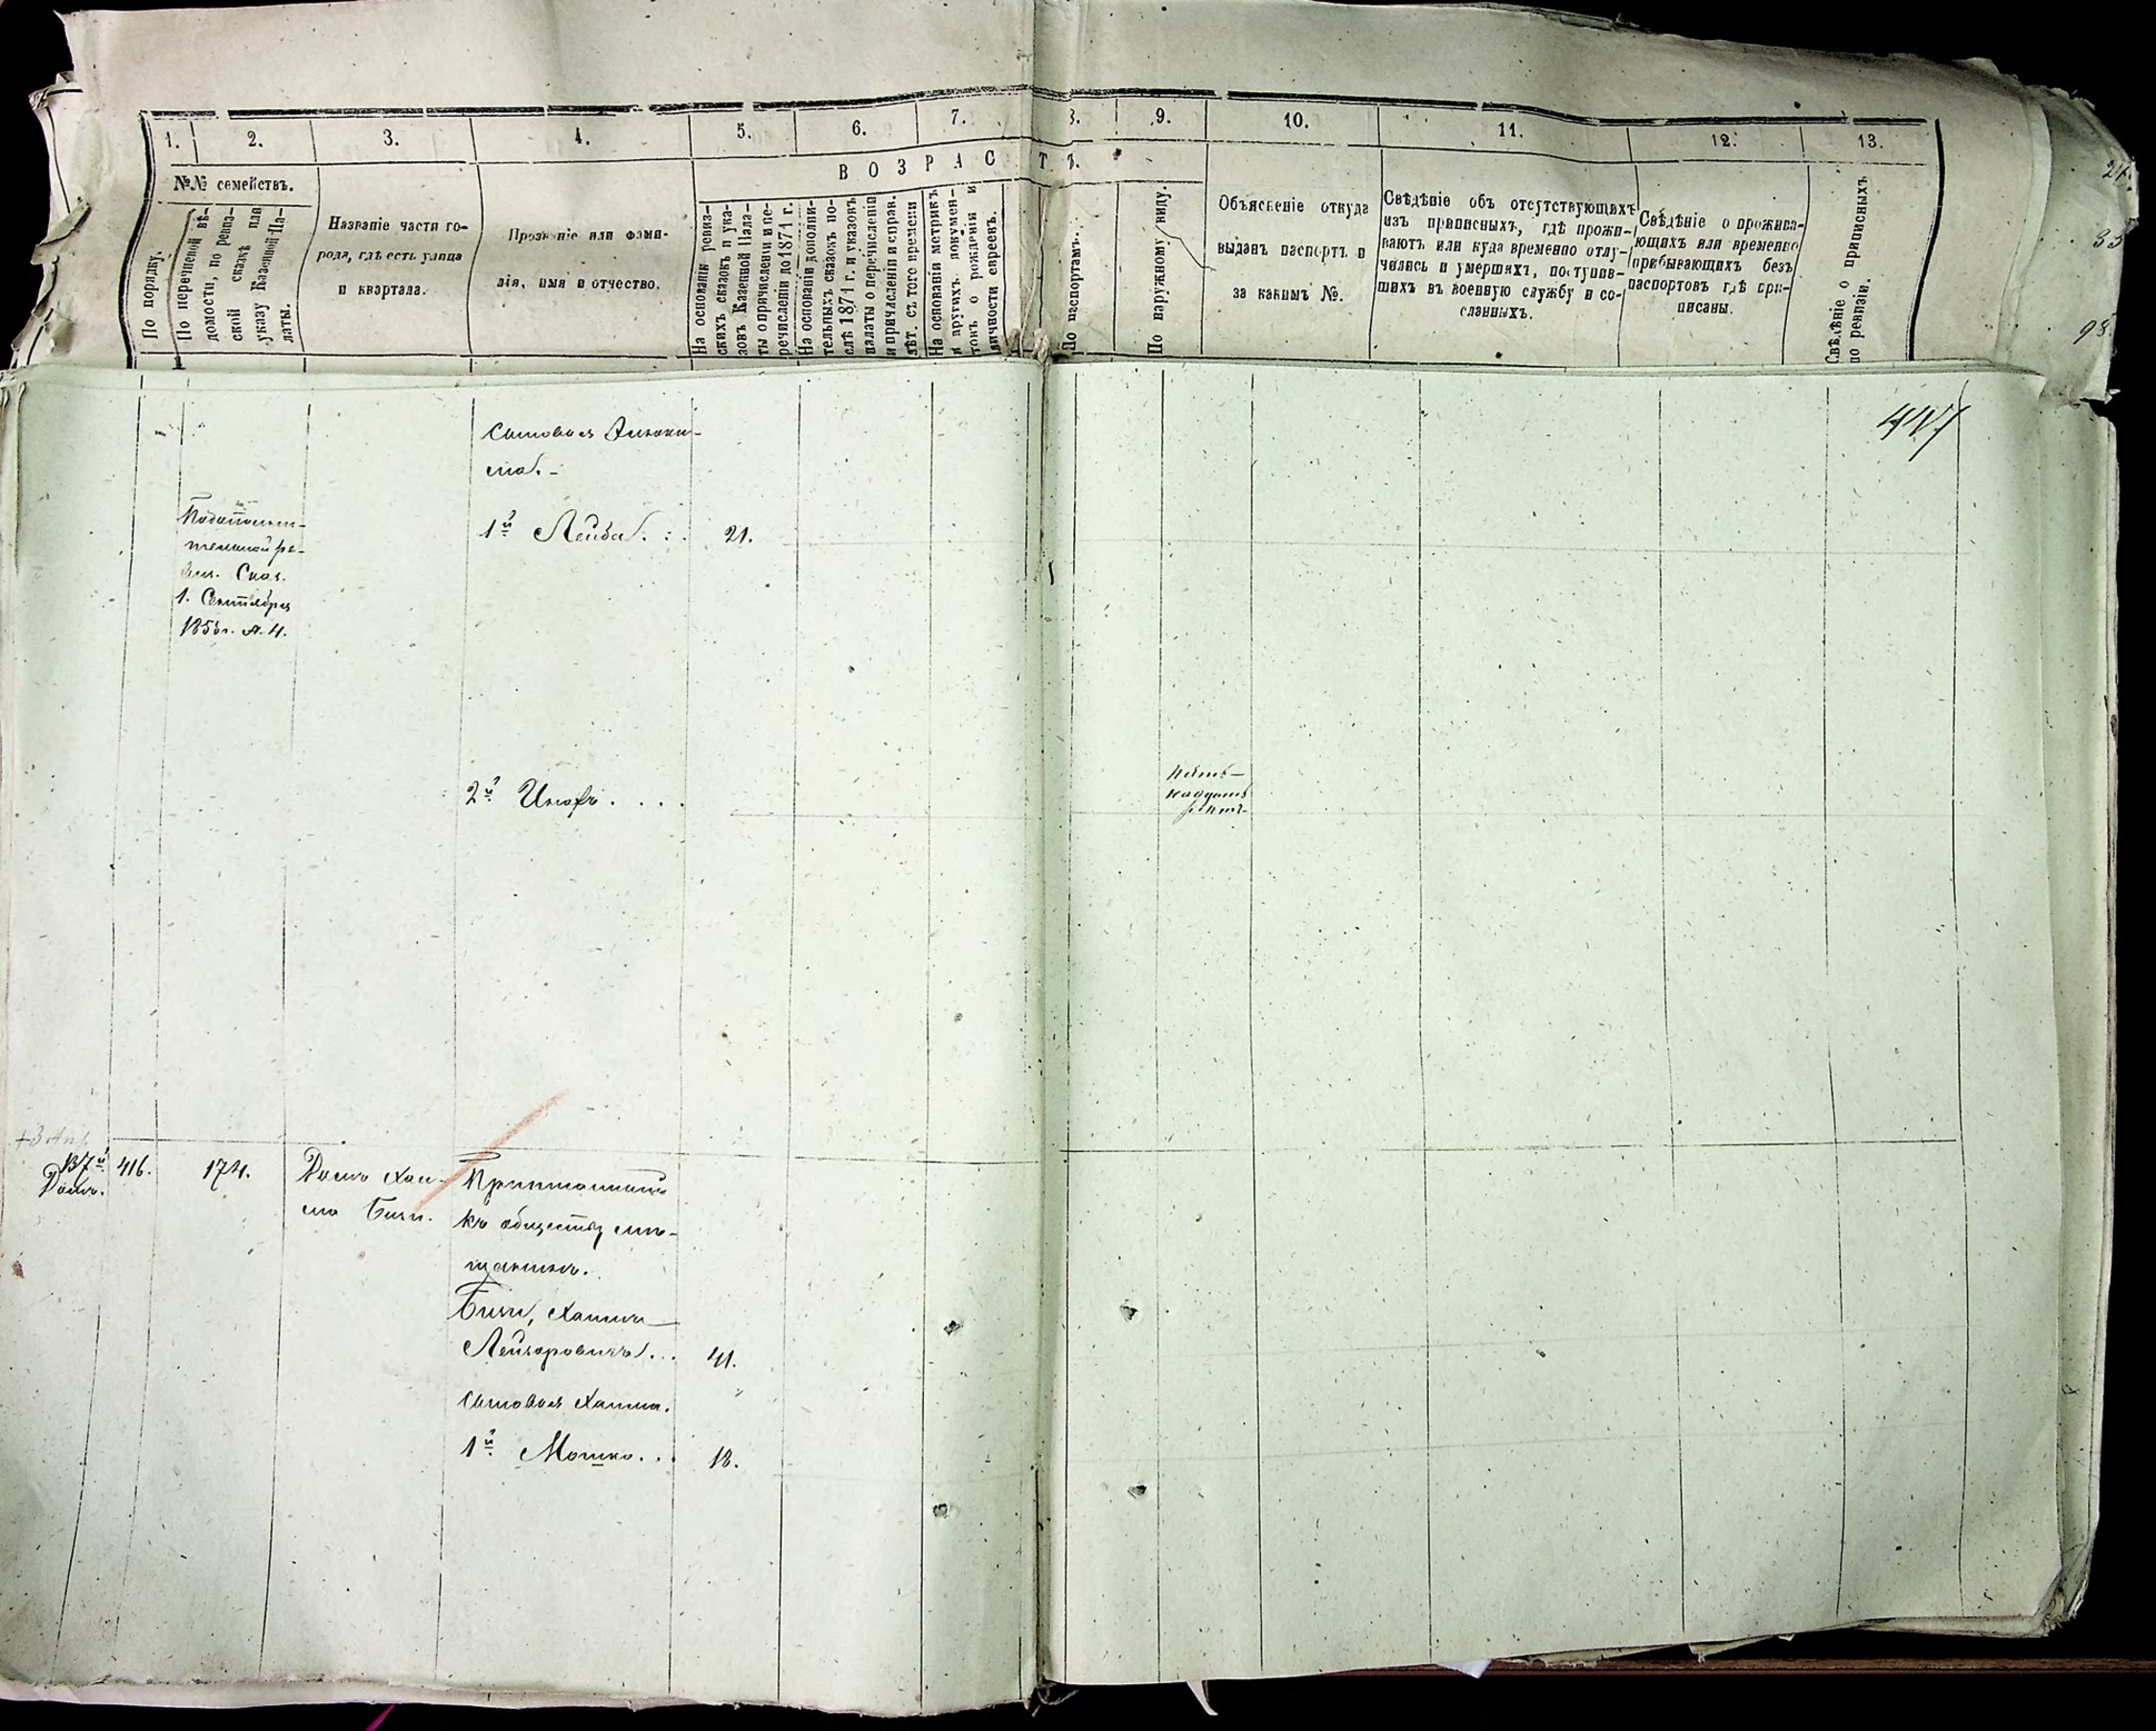 1.
2.
3.
4.
5.
6.
7.
8.
9.
10.
11.
12.
13.
№№ семействъ.
ВОЗРАСТЪ.
По порядку.
По перечневой вѣ-
домости, по ревиз-
ской сказкѣ или
указу Казенной Па-
латы.
Названіе части го-
рода, гдѣ есть улица
и квартала.
Прозваніе или фами-
лія, имя и отчество.
На основаніи ревиз-
скихъ сказокъ и ука-
зовъ Казенной Пала-
ты о причисленіи и пе-
речисленіи до 1871 г.
На основаніи дополни-
тельныхъ сказокъ по-
слѣ 1871 г. и указовъ
палаты о перечисленіи
и причисленіи и справ.
лѣт. съ того времени
На основаніи метрикъ
и другихъ докумен-
товъ о рожденіи и
личности евреевъ.
По паспортамъ.
По наружному виду.
Объясненіе откуда
выданъ паспортъ и
за какимъ №.
Свѣдѣніе объ отсутствующихъ
изъ приписныхъ, гдѣ прожи-
ваютъ или куда временно отлу-
чились и умершихъ, поступив-
шихъ въ военную службу и со-
сланныхъ.
Свѣдѣніе о прожива-
ющихъ или временно
пребывающихъ безъ
паспортовъ гдѣ при-
писаны.
Свѣдѣніе о приписныхъ
по ревизіи.
417
Сыновья
1й Лейба
21.
По дополни-
тельной ре-
виз. Сказ.
1. Сентября
2й
пять-
надцать
лѣтъ
416.
174.
Домъ Хаи-
ма Бичи.
къ обществу мѣ-
щанинъ.
Бичи, Хаимъ
Лейзаровичъ
41.
Сыновья Хаима.
1й Мошко
18.